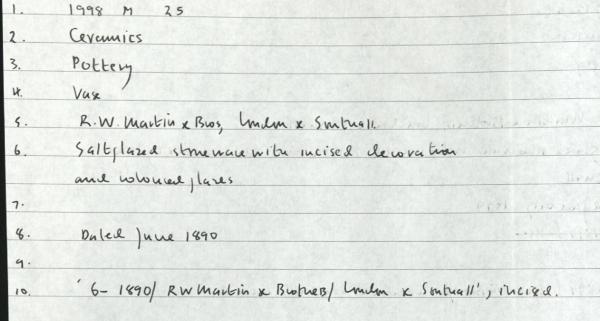 1. 1998 M 25
2. Ceramics
3. Pottery
4. Vase
5. R.W. Martin & Bros, London & Southall.
6. Saltglazed stoneware with incised decoration
and coloured glazes
7.
8. Dated June 1890
9.
10. '6- 1890/ RW Martin & Brothers/ London & Southall', incised.